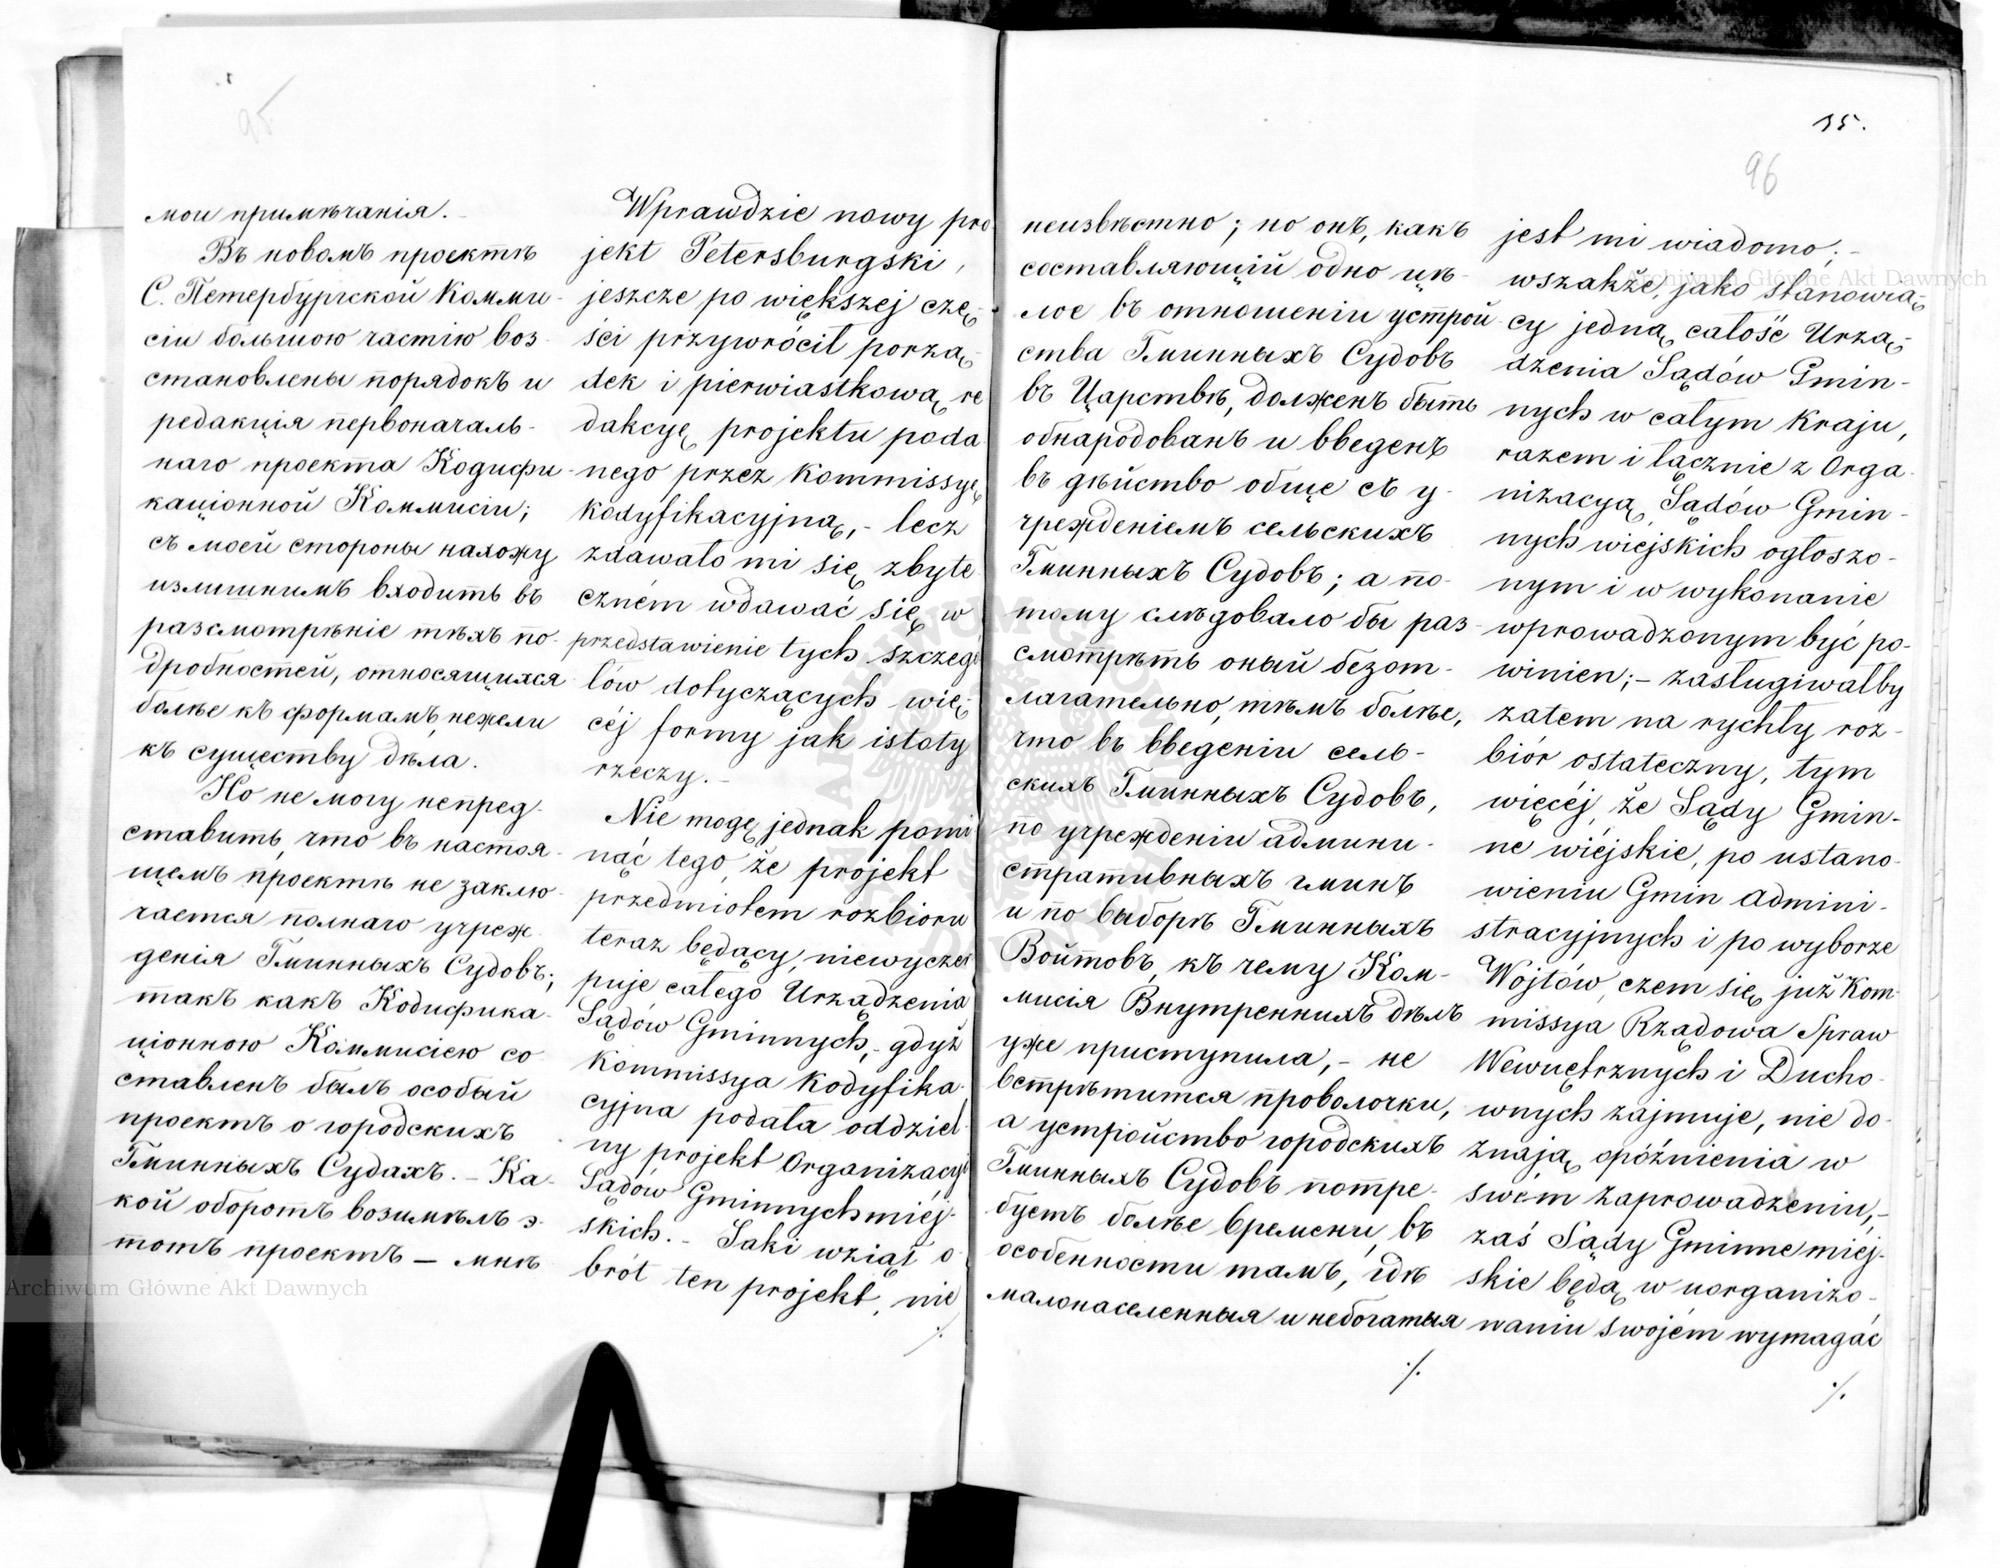 95
мои примѣчанія.
Въ новомъ проектѣ
С. Петербургской Комми-
сіи большою частію воз-
становлены порядокъ и
редакція первоначаль-
наго проекта Кодифи-
каціонной Коммисіи;
съ моей стороны нахожу
излишнимъ входить въ
разсмотрѣніе тѣхъ по-
дробностей, относящихся
болѣе къ формамъ, нежели
къ существу дѣла.
Но не могу непред-
ставить, что въ настоя-
щемъ проектѣ не заклю-
чается полнаго учреж-
денія Гминныхъ Судовъ;
такъ какъ Кодифика-
ціонною Коммисіею со-
ставленъ былъ особый
проектъ о городскихъ
Гминныхъ Судахъ. – Ка-
кой оборотъ возимѣлъ э-
тотъ проектъ – мнѣ
Wprawdzie nowy pro
jekt Petersburgski,
jeszcze po większej czę-
ści przywrócił porzą-
dek i pierwiastkową re
dakcyę projektu poda
nego przez Kommissyę
Kodyfikacyjną, – lecz
zdawało mi się zbyte
czném wdawać się w
przedstawienie tych szczegó
łów dotyczących wię-
céj formy jak istoty
rzeczy. –
Nie mogę jednak pomi
nąć tego, że projekt
przedmiotem rozbioru
teraz będący, niewyczer
puje całego Urządzenia
Sądów Gminnych, – gdyż
Kommissya Kodyfika-
cyjna podała oddziel
ny projekt Organizacyi
Sądów Gminnych miéj-
skich. – Jaki wziął o-
brót ten projekt, nie
./.
15.
96
неизвѣстно; но онъ, какъ
составляющій одно цѣ-
лое въ отношеніи устрой-
ства Гминныхъ Судовъ
въ Царствѣ, долженъ быть
обнародованъ и введенъ
въ дѣйство обще съ у-
чрежденіемъ сельскихъ
Гминныхъ Судовъ; а по-
тому слѣдовало бы раз-
смотрѣть оный безот-
лагательно, тѣмъ болѣе,
что въ введеніи сель-
скихъ Гминныхъ Судовъ,
по учрежденіи админи-
стративныхъ гминъ
и по выборѣ Гминныхъ
Войтовъ, къ чему Ком-
мисія Внутреннихъ дѣлъ
уже приступила, – не
встрѣтится проволочки,
а устройство городскихъ
Гминныхъ Судовъ потре-
буетъ болѣе времени, въ
особенности тамъ, гдѣ
малонаселенныя и небогатыя
./.
jest mi wiadomo; –
wszakże, jako stanowią-
cy jedną całość Urzą-
dzenia Sądów Gmin-
nych w całym Kraju,
razem i łącznie z Orga-
nizacyą Sądów Gmin-
nych wiejskich ogłoszo-
nym i w wykonanie
wprowadzonym być po-
winien; – zasługiwałby
zatem na rychły roz-
biór ostateczny, tym
więcéj, że Sądy Gmin-
ne wiéjskie, po ustano-
wieniu Gmin admini-
stracyjnych i po wyborze
Wojtów, czem się już Kom-
missya Rządowa Spraw
Wewnętrznych i Ducho-
wnych zajmuje, nie do-
znają opóźnienia w
swém zaprowadzeniu, –
zaś Sądy Gminne miéj-
skie będą w uorganizo-
waniu swojém wymagać
./.
Archiwum Główne Akt Dawnych
Archiwum Główne Akt Dawnych